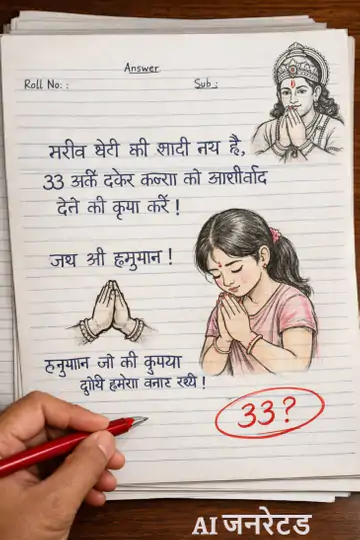 Answer
Roll No: : Sub :
मरीव बेटी की शादी नय है,
33 अकें दकेर कन्या को आशीर्वाद
देने की कृपा करें !
जय श्री हमुमान !
हनुमान जो की कुपया
हमेशा वनाए रखे !
33?
AI जनरेटड